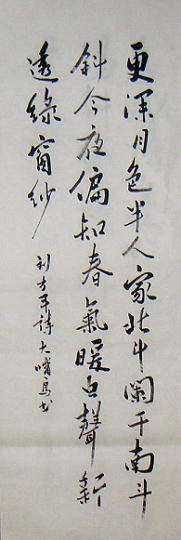 更深月色半人家北斗闌干南斗
斜今夜偏知春氣暖虫聲新
透綠窗紗
刘方平詩大嘴鳥书